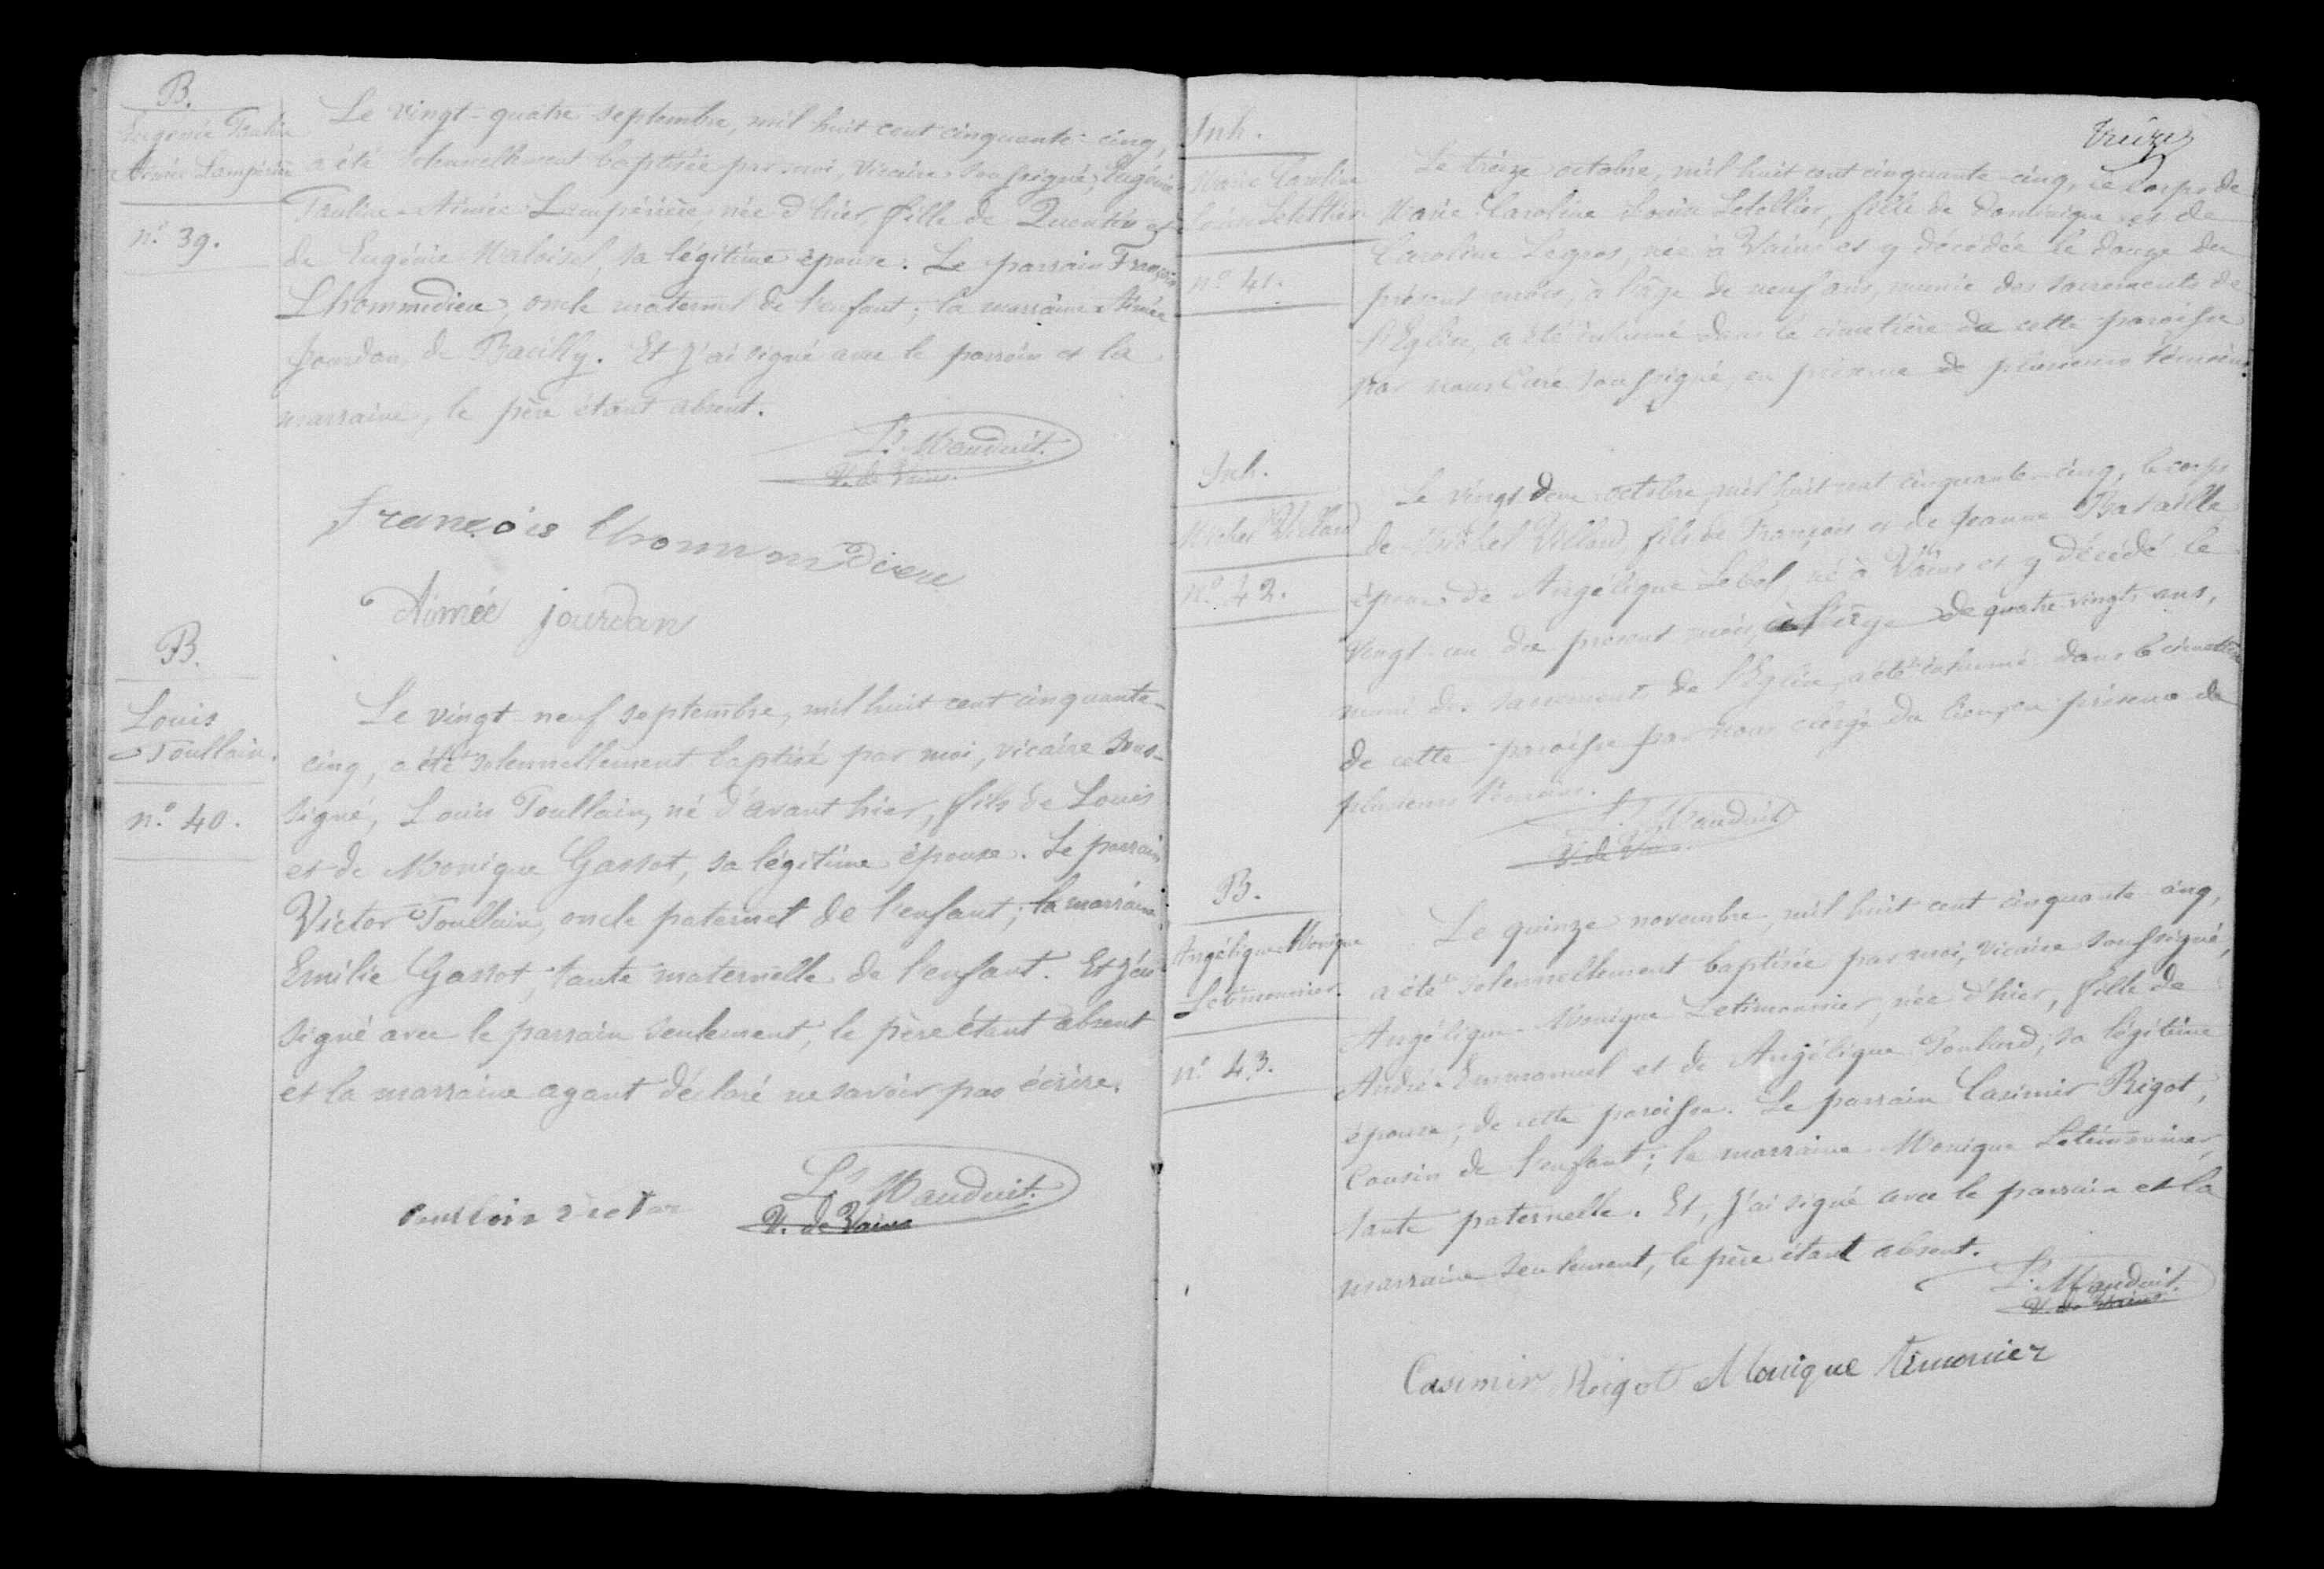 B.
Eugénie Pauline
Aimée Lempérière
n.° 39.
Le vingt-quatre septembre, mil huit cent cinquante-cinq,
a été solennellement baptisée par moi, vicaire soussigné, Eugénie
Pauline-Aimée Lempérière, née d'hier, fille de Quentin et
de Eugénie Maloisel, sa légitime épouse. Le parrain François
Lhommedieu, oncle maternel de l'enfant; la marraine Aimée
Jourdan, de Bacilly. Et j'ai signé avec le parrain et la
marraine, le père étant absent.
L.s Mauduit.
V. de Vains.
François lhommedieu
Aimée jourdan
B.
Louis
Poullain.
n.° 40.
Le vingt-neuf septembre, mil huit cent cinquante-
cinq, a été solennellement baptisé par moi, vicaire sous-
signé, Louis Poullain, né d'avant hier, fils de Louis
et de Monique Gassot, sa légitime épouse. Le parrain
Victor Poullain, oncle paternel de l'enfant; la marraine
Emélie Gassot, tante maternelle de l'enfant. Et j'ai
signé avec le parrain seulement, le père étant absent
et la marraine ayant déclaré ne savoir pas écrire.
L.s Mauduit.
V. de Vains
treize
Inh.
Marie Caroline
Louise Letellier
n.° 41.
Le treize octobre, mil huit cent cinquante-cinq, le corps de
Marie Caroline Louise Letellier, fille de Dominique et de
Caroline Legros, née à Vains et y décédée le douze du
présent mois, à l'âge de neuf ans, munie des sacrements de
l'Eglise, a été inhumé dans le cimetière de cette paroisse
par nous Curé soussigné, en présence de plusieurs témoins.
Inh.
Michel Villard
n.° 42.
Le vingt deux octobre, mil huit cent cinquante-cinq, le corps
de Michel Villard fils de François et de Jeanne Bataille
époux de Angélique Lebel, né à Vains et y décédé le
vingt-un du présent mois, à l'âge de quatre vingts ans,
muni des sacrements de l'Eglise, a été inhumé dans le cimetière
de cette paroisse par nous clergé du lieu, en présence de
plusieurs témoins.
L.s Mauduit
V. de Vains
B.
Angélique-Monique
Letimonnier.
n.° 43.
Le quinze novembre, mil huit cent cinquante-cinq,
a été solennellement baptisée par moi, vicaire soussigné,
Angélique-Monique Letimonnier, née d'hier, fille de
André-Emmanuel et de Angélique Poulard, sa légitime
épouse, de cette paroisse. Le parrain Casimir Rigot,
cousin de l'enfant; la marraine Monique Letimonnier,
tante paternelle. Et, j'ai signé avec le parrain et la
marraine seulement, le père étant absent.
L.s Mauduit.
V. de Vains.
Casimir Rigot Monique timonier